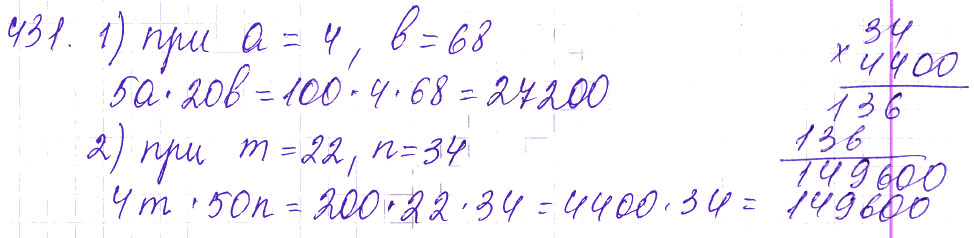 431. 1) при a = 4, b = 68
5a · 20b = 100 · 4 · 68 = 27200
2) при m = 22, n = 34
4m · 50n = 200 · 22 · 34 = 4400 · 34 = 149600
34
× 4400
136
136
149600